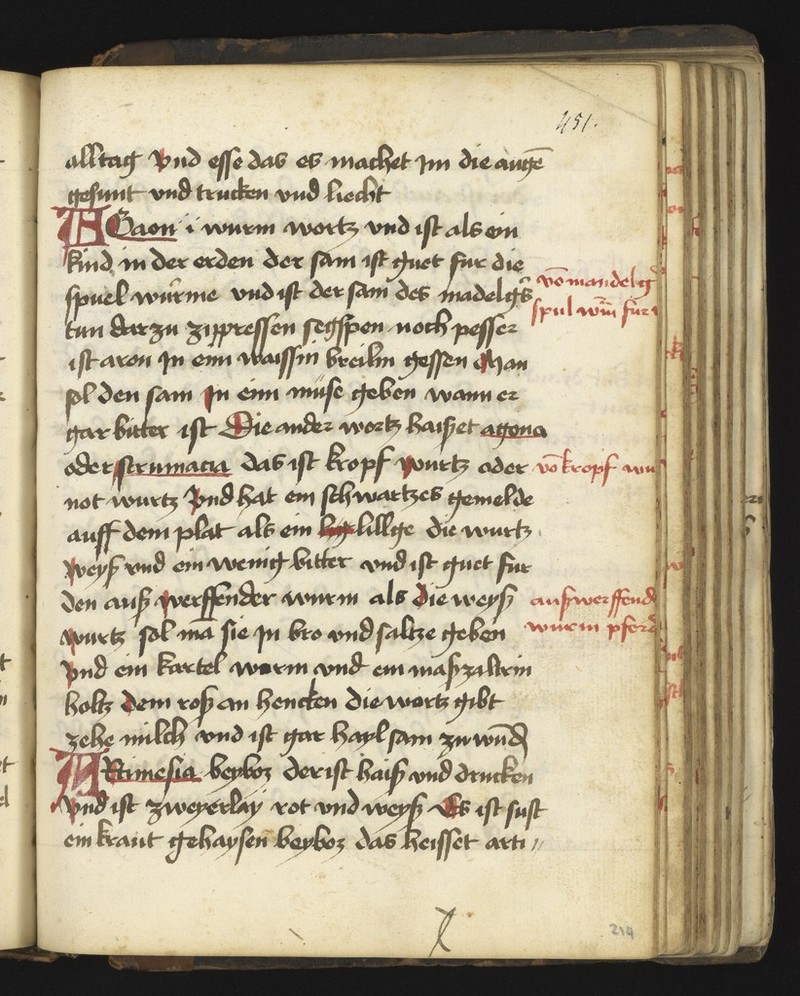 451.
alltag vnd esse das es machet jm die augē
gesunt vnd trucken vnd liecht
Aaron i wurm wortz vnd ist als ein
kind in der erden der sam ist guet fur die
spuel würme vnd ist der sam des madelgs̄
vō mandelg
tun darzu zippressen segspen noch pesser
spul wm̄ fur
ist aron jn einn waissin breilin gessen Man
sol den sam jn einn müse geben wann er
gar bitter ist Die ander wortz haisset agona
oder scrumacia das ist kropf wurtz oder
vō kropf wu
not wurtz Vnd hat ein schwartzes gemelde
auff dem plat als ein lillge die wurtz
weyß vnd ein wenig bitter vnd ist guet fur
den auß werffender wurm als die weyß
außwerffend
wurtz sol mā sie jn bro vnd saltze geben
wurm pferd
vnd ein kartel worm vnd ein maßzaltrin
holtz dem roß an hencken die wortz gibt
zehe milch vnd ist gar haylsam zu wūd
Artimesia beyboz der ist haiß vnd drucken
vnd ist zweyerlay rot vnd weyß Es ist sust
ein kraut gehaysen beyboz das heisset arti
214